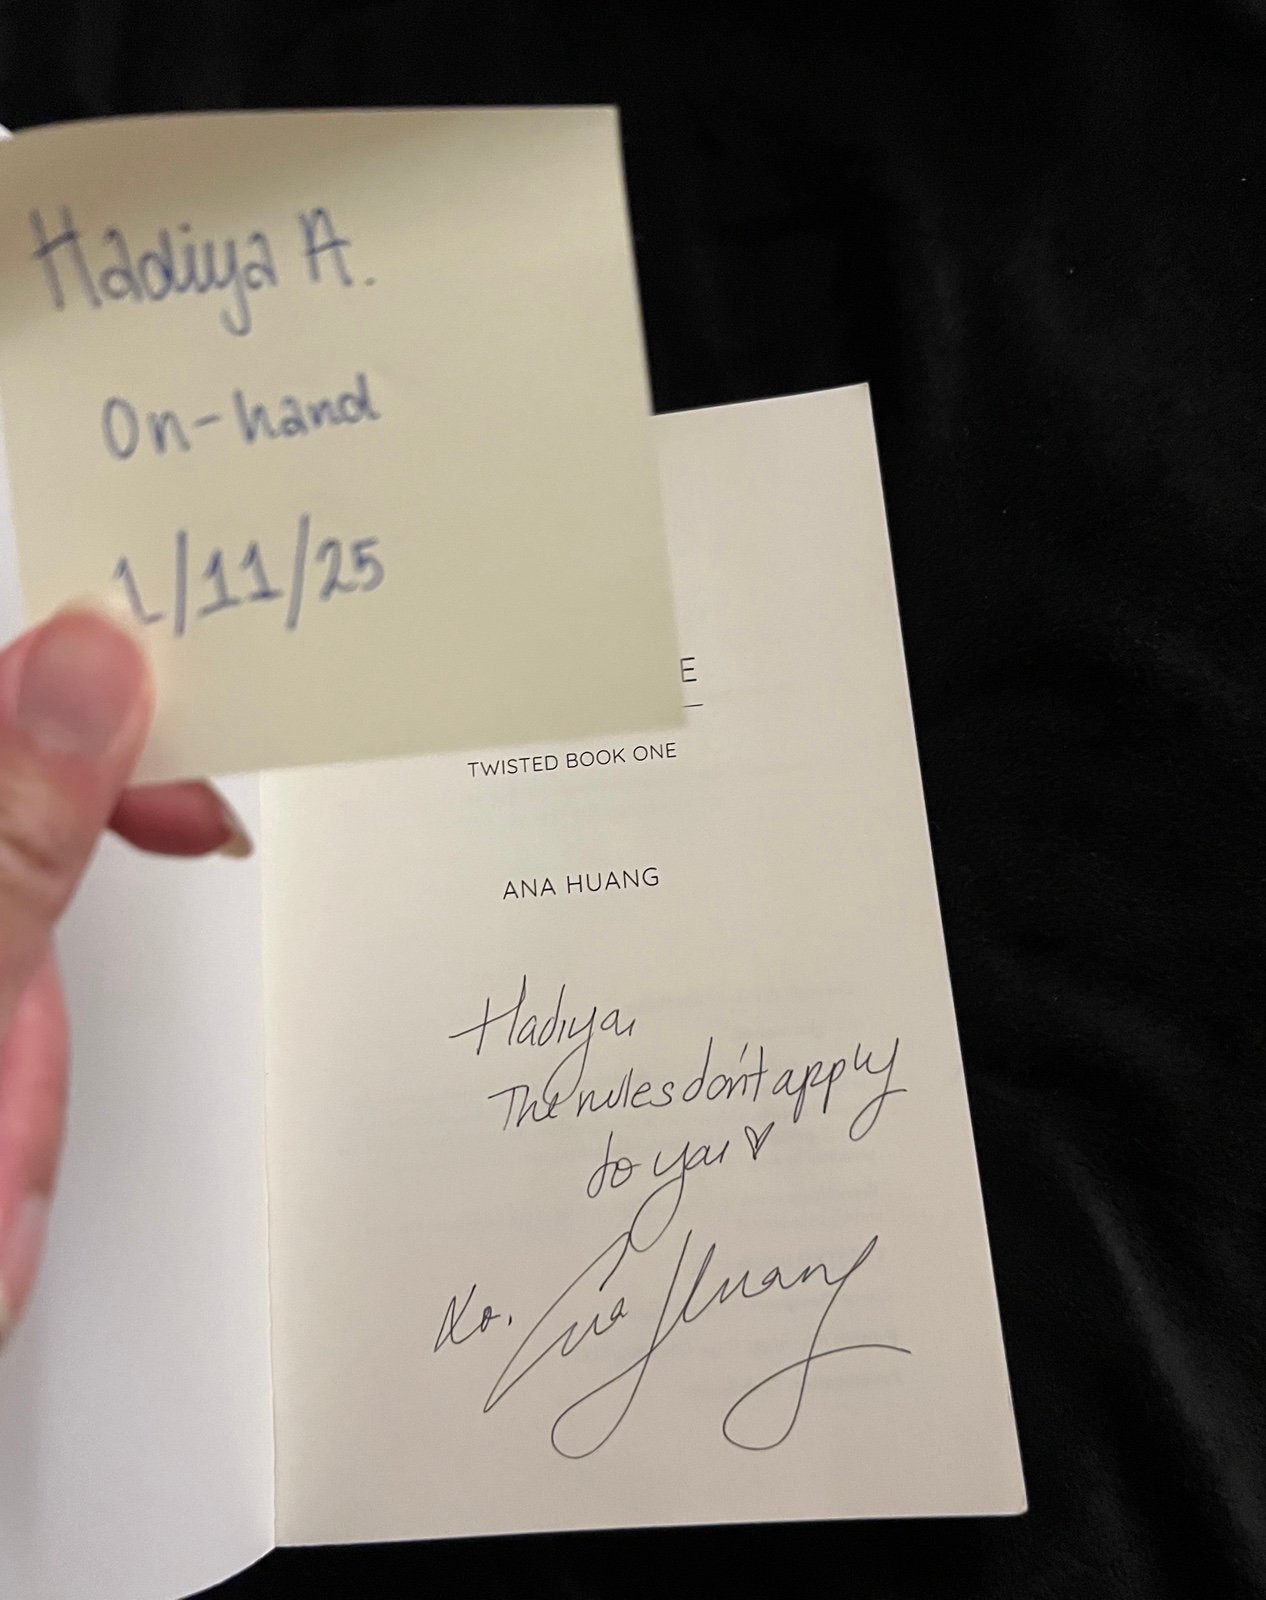 Hadiya A.
On-hand
1/11/25
E
TWISTED BOOK ONE
ANA HUANG
Hadiya,
The rules don't apply
to you ♡
Xo,
Ana Huang